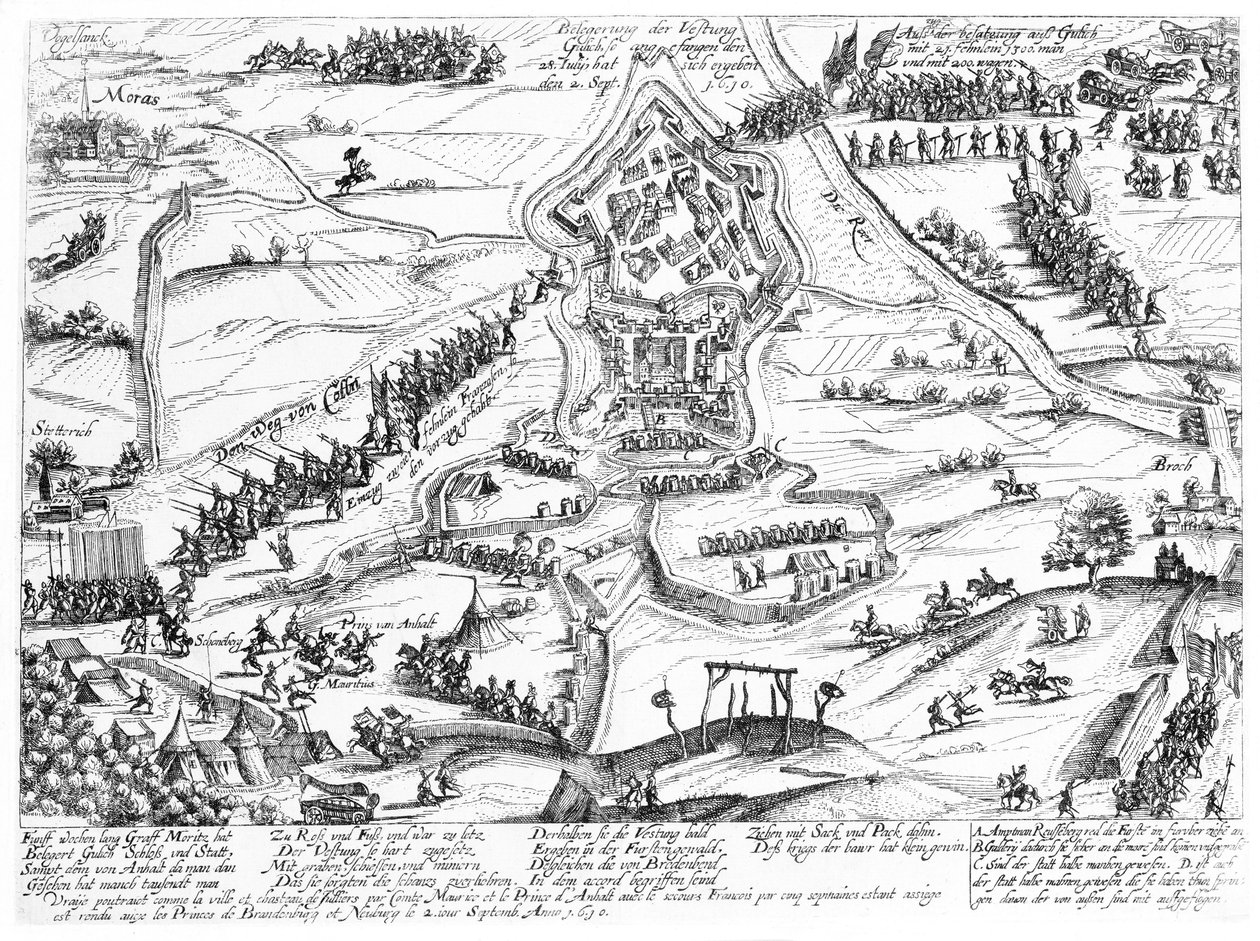 Vogelsanck.
Belegerung der Vestung
Gulich, so ang fangen den
28. Iulij hat sich ergeben
den 2. Sept. 1.6.10.
Auß der besatzung auß Gulich
mit 21. fehnlein 1500. man
vnd mit 200. wagen.
Moras
A
Die Roer
Den Weg von Cölln
fehnlein Franzosen,
den vorzug gehabt.
Stetterich
B
D
C
C
Broch
Schoneberg
Prins van Anhalt
G. Mauritius
Funff wochen lang Graff Moritz hat
Belegert Gulich Schloß, vnd Statt,
Sampt dem von Anhalt da man dan
Gesehen hat manch tausendt man
Zu Roß vnd Fuß, vnd war zu letz
Der Vestung so hart zugesetz
Mit graben, schiessen, vnd miniern
Das sie sorgten die schantz zverliehren.
Derhalben sie die Vestung bald
Ergeben in der Fursten gewald.
Desgleichen die von Bredenbend
In dem accord begriffen seind
Ziehen mit Sack vnd Pack dahin.
Deß kriegs der bawr hat klein gewin.
Vraije poutraict comme la ville et chasteau de Iulliers par Comte Maurice et le Prince d Anhalt avec le secours Francois par cinq sepmaines estant assiege
est rendu aux les Princes de Brandenburg et Neuburg le 2. iour Septemb. Anno 1.6.10.
A. Amptman Reuschebergred die Fürste an
B. Gallerij dadurch sie sicher an die maure sint
C. Sind der statt halbe manden gewesen. D. ist auch
der statt halbe gewesen die sie haben
gen davon der von aussen sind mit auffgeflogen.